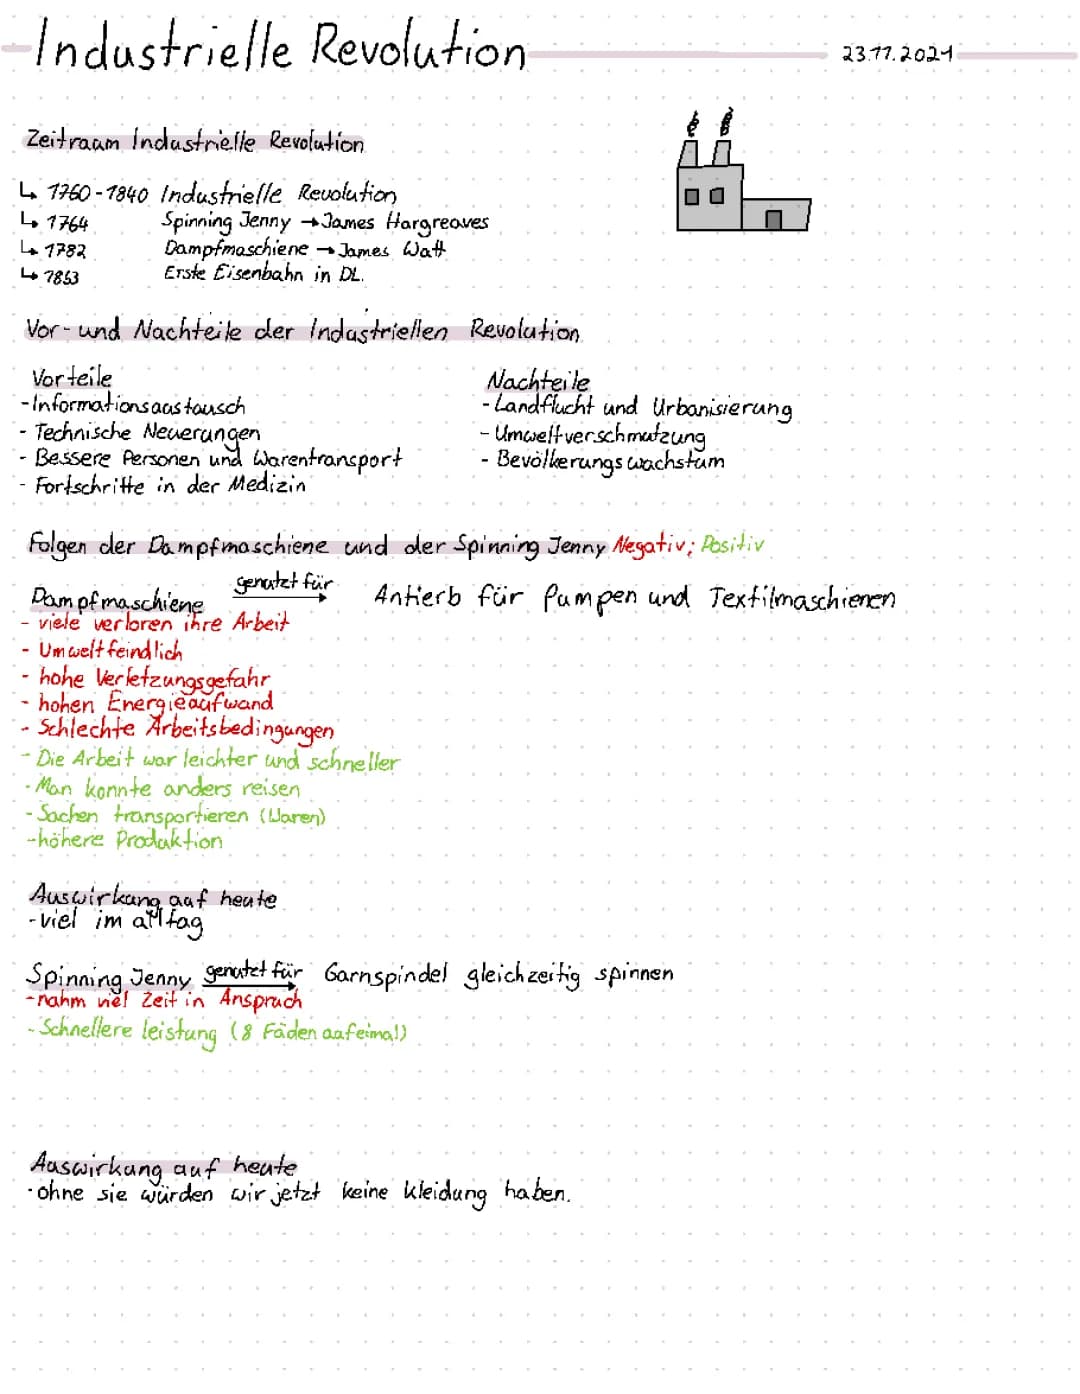 Industrielle Revolution
23.11.2021
Zeitraum Industrielle Revolution
↳ 1760-1840 Industrielle Revolution
↳ 1764 Spinning Jenny → James Hargreaves
↳ 1782 Dampfmaschiene → James Watt
↳ 1853 Erste Eisenbahn in DL.
Vor- und Nachteile der Industriellen Revolution
Vorteile
- Informationsaustausch
- Technische Neuerungen
- Bessere Personen und Warentransport
- Fortschritte in der Medizin
Nachteile
- Landflucht und Urbanisierung
- Umweltverschmutzung
- Bevölkerungswachstum
Folgen der Dampfmaschiene und der Spinning Jenny Negativ; Positiv
Dampfmaschiene genutzt für → Antierb für Pumpen und Textilmaschienen
- viele verloren ihre Arbeit
- Umweltfeindlich
- hohe Verletzungsgefahr
- hohen Energieaufwand
- Schlechte Arbeitsbedingungen
- Die Arbeit war leichter und schneller
- Man konnte anders reisen
- Sachen transportieren (Waren)
- höhere Produktion
Auswirkung auf heute
- viel im alltag
Spinning Jenny genutzt für → Garnspindel gleichzeitig spinnen
- nahm viel Zeit in Anspruch
- Schnellere leistung (8 Fäden aufeimal)
Auswirkung auf heute
- ohne sie würden wir jetzt keine kleidung haben.